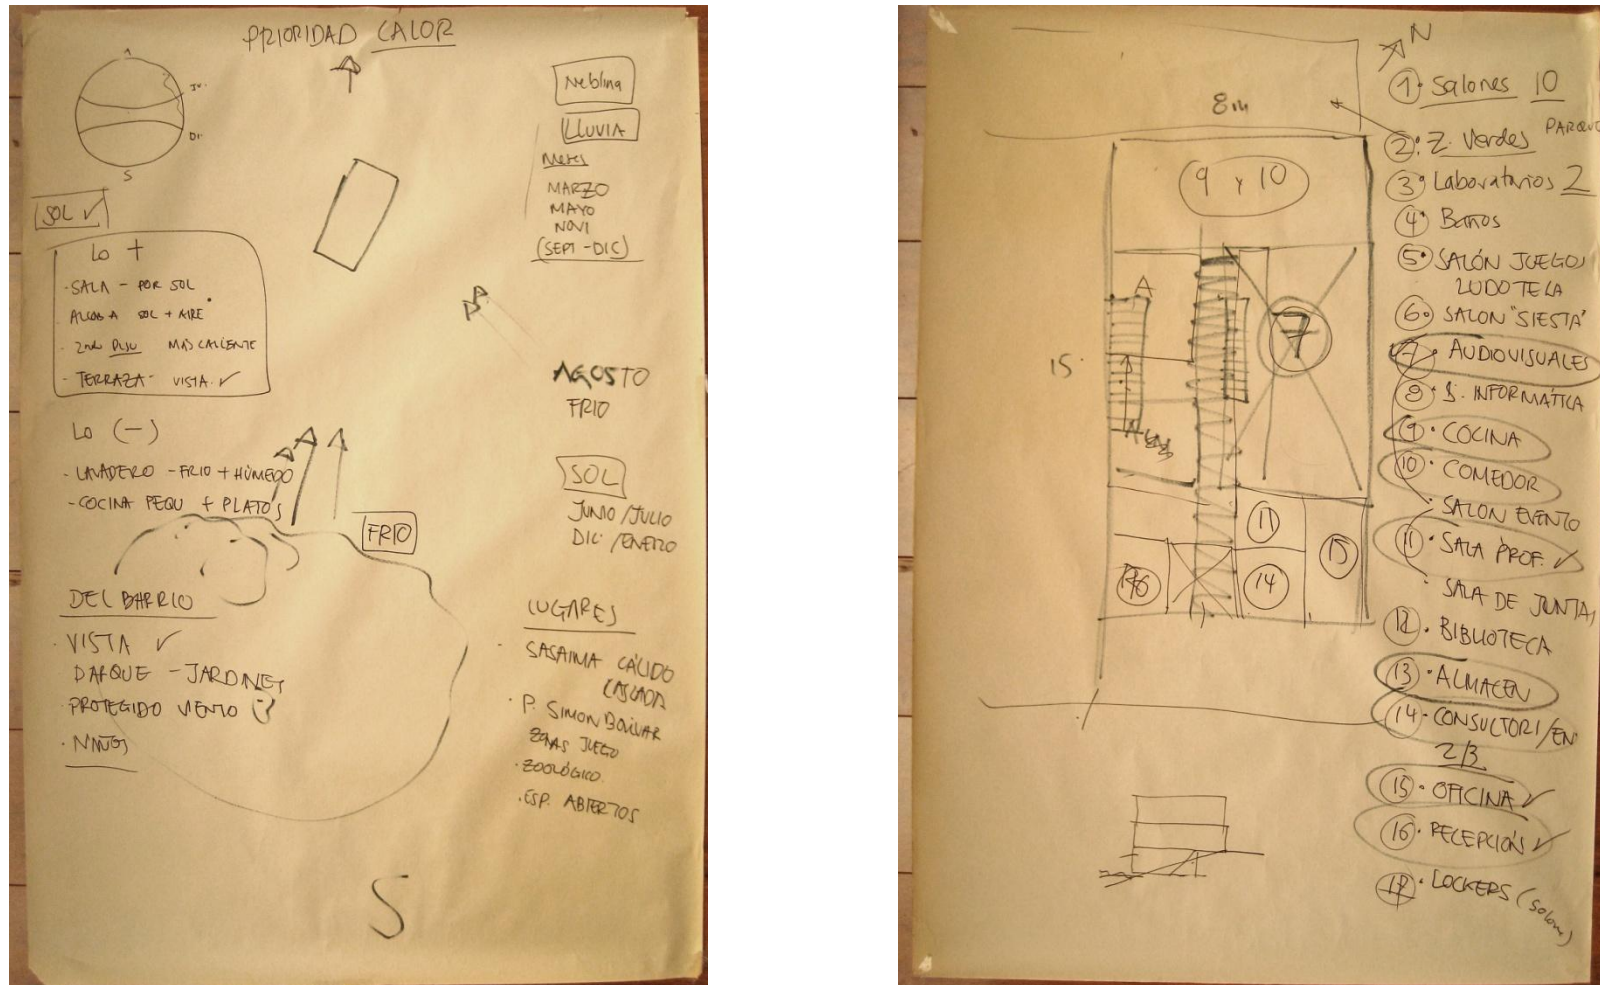 PRIORIDAD CALOR
S
SOL ✓
Lo +
· SALA - POR SOL
ALCOBA SOL + AIRE
· 2ndo PISO MAS CALIENTE
- TERRAZA - VISTA ✓
Lo (-)
- LAVADERO - FRIO + HÚMEDO
- COCINA PEQU + PLATOS
FRIO
DEL BARRIO
· VISTA ✓
PARQUE - JARDINES
· PROTEGIDO VIENTO
· NIÑOS
Neblina
LLUVIA
Meses
MARZO
MAYO
NOVI
(SEPT - DIC)
AGOSTO
FRIO
SOL
JUNIO / JULIO
DIC / ENERO
LUGARES
- SASAIMA CÁLIDO
CASCADA
· P. SIMON BOLIVAR
ZONAS JUEGO
· ZOOLÓGICO
· ESP. ABIERTOS
S
N
8m
15
9 y 10
7
A
11
15
14
16
1· Salones 10
2· Z. Verdes PARQUE
3· Laboratorios 2
4· Baños
5· SALÓN JUEGOS
LUDOTECA
6· SALON "SIESTA"
7· AUDIOVISUALES
8· S. INFORMÁTICA
9· COCINA
10· COMEDOR
· SALON EVENTO
11· SALA PROF. ✓
· SALA DE JUNTAS
12· BIBLIOTECA
13· ALMACEN
14· CONSULTORI/EN
2/3
15· OFICINA ✓
16· RECEPCIÓN ✓
17· LOCKERS (salones)